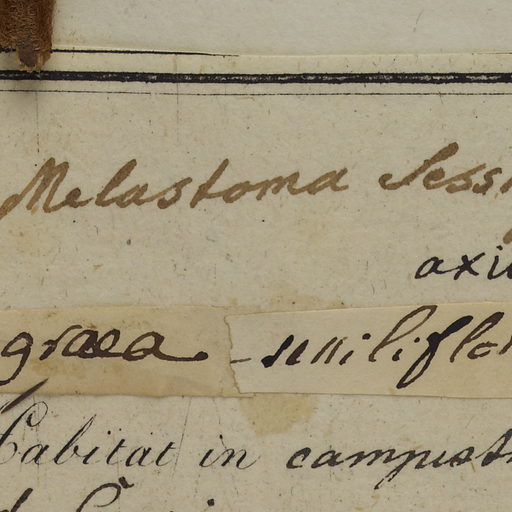 Melastoma Sess
axi
graea - sessiliflo
Habitat in campest